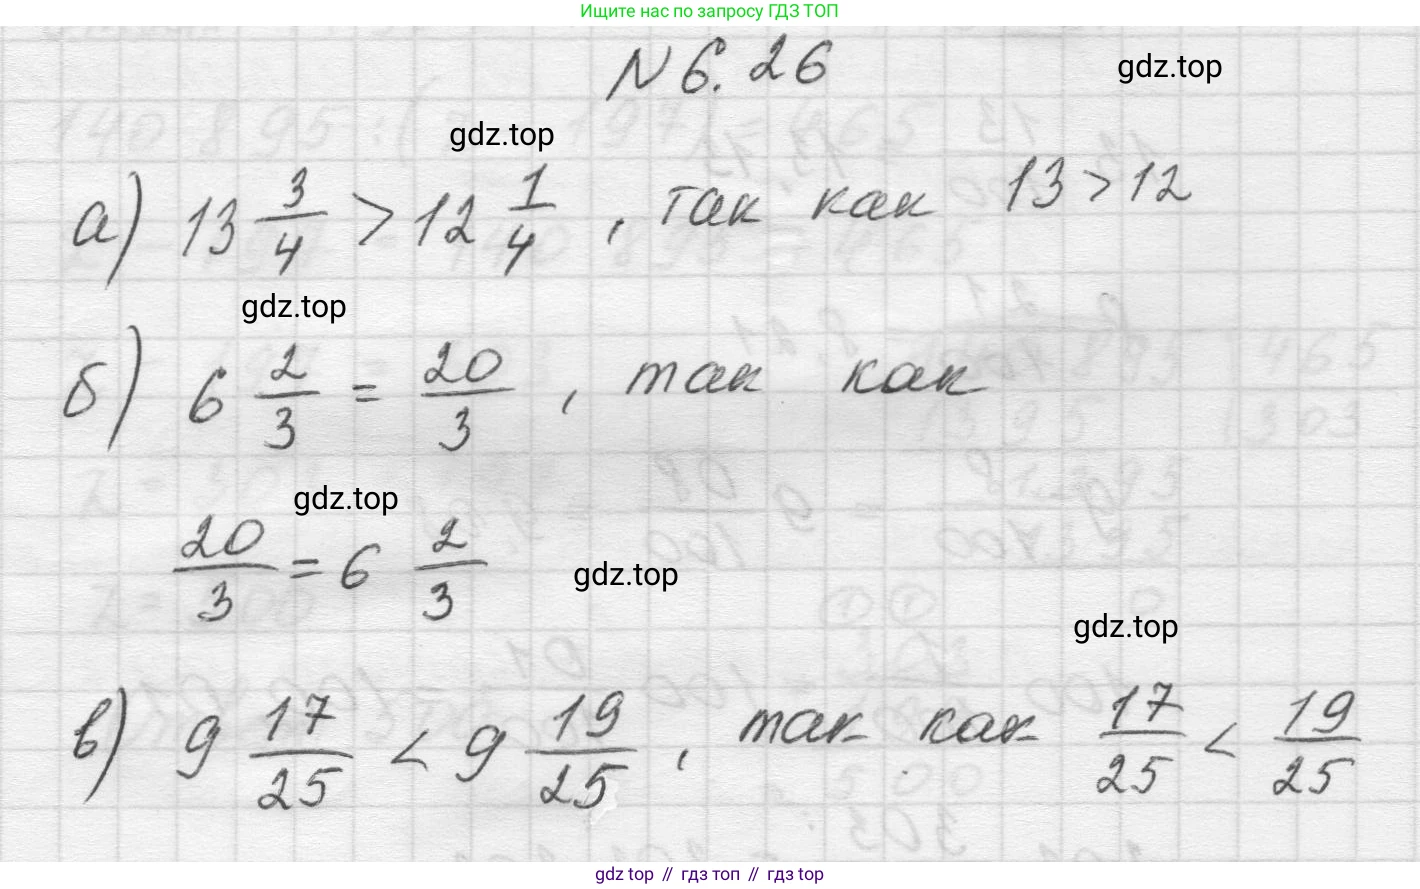 Ищите нас по запросу ГДЗ ТОП
N 6.26
gdz.top
gdz.top
а) 13 3/4 > 12 1/4, так как 13 > 12
gdz.top
б) 6 2/3 = 20/3, так как
gdz.top
20/3 = 6 2/3
gdz.top
gdz.top
в) 9 17/25 < 9 19/25, так как 17/25 < 19/25
gdz.top // гдз топ // гдз top